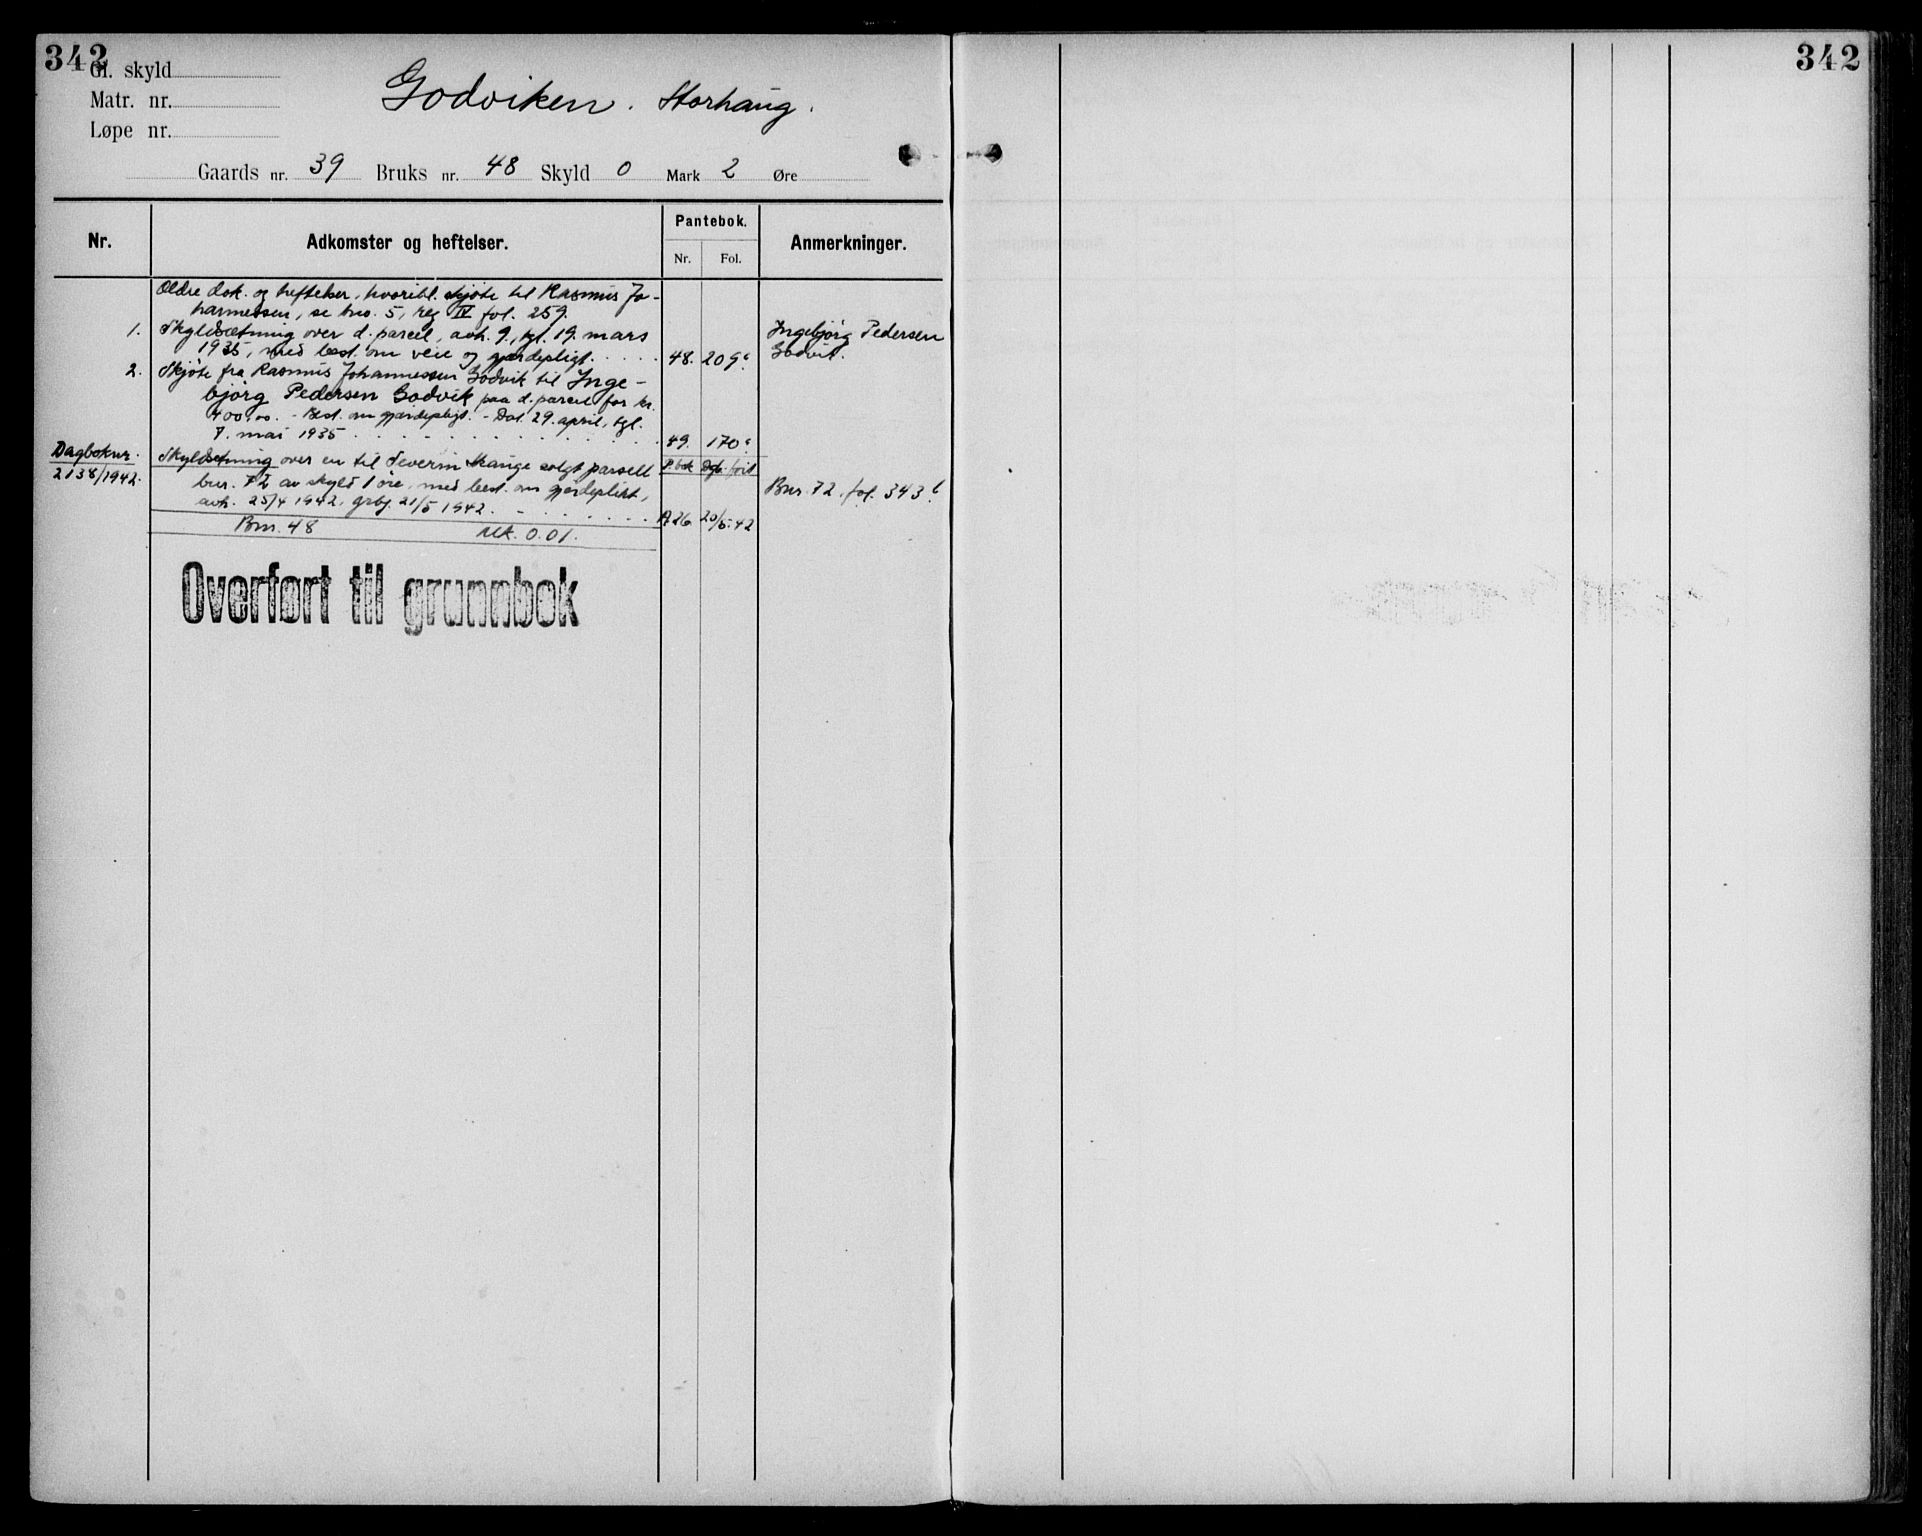 342
Gl. skyld
Matr. nr.
Løpe nr.
Godviken. Storhaug.
Gaards nr. 39 Bruks nr. 48 Skyld 0 Mark 2 Øre
Nr.
Adkomster og heftelser.
Pantebok.
Nr. Fol.
Anmerkninger.
Ældre dok. og heftelser, hvoribl. skjøte til Rasmus Jo-
hannessen, se bno. 5, reg IV fol. 259.
1. Skyldsætning over d. parcel, avh. 9., tgl. 19. mars
1935, med best. om veie og gjerdepligt. . . . . 48. 209
Ingebjørg Pedersen
Godvik.
2. Skjøte fra Rasmus Johannessen Godvik til Inge-
bjørg Pedersen Godvik paa d. parcel for kr.
400.00. - Best. om gjærdepligt. - Dat. 29. april, tgl.
7. mai 1935 . . . . . . . . . . 49. 170
Dagboknr.
2138/1942.
Skyldsetning over en til Severin Hauge solgt parsell
P.bok Dgb. ført
bnr. 72 av skyld 1 øre, med best. om gjerdeplikt,
Bnr. 72. fol. 343
avh. 25/4 1942, grbg. 21/5 1942. - . . . . . . A26 20/5.42
Bnr. 48 Mk. 0.01.
Overført til grunnbok
342